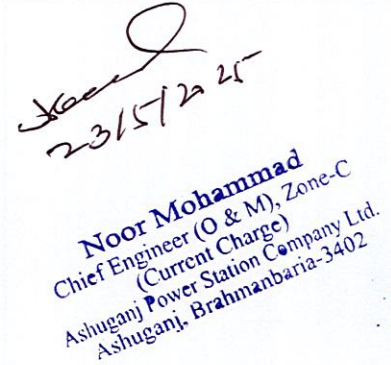 23/5/2025
Noor Mohammad
Chief Engineer (O & M), Zone-C
(Current Charge)
Ashuganj Power Station Company Ltd.
Ashuganj, Brahmanbaria-3402